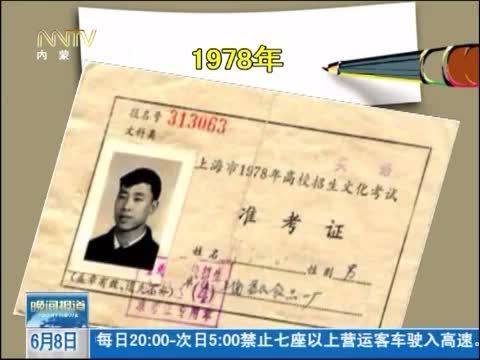 NMTV
内蒙
1978年
报名号 313063
文科类
英语
上海市1978年高校招生文化考试
准考证
姓名
性别 男
(盖章有效,请勿涂改)
准考证专用章
晚间报道
6月8日
每日20:00-次日5:00禁止七座以上营运客车驶入高速。